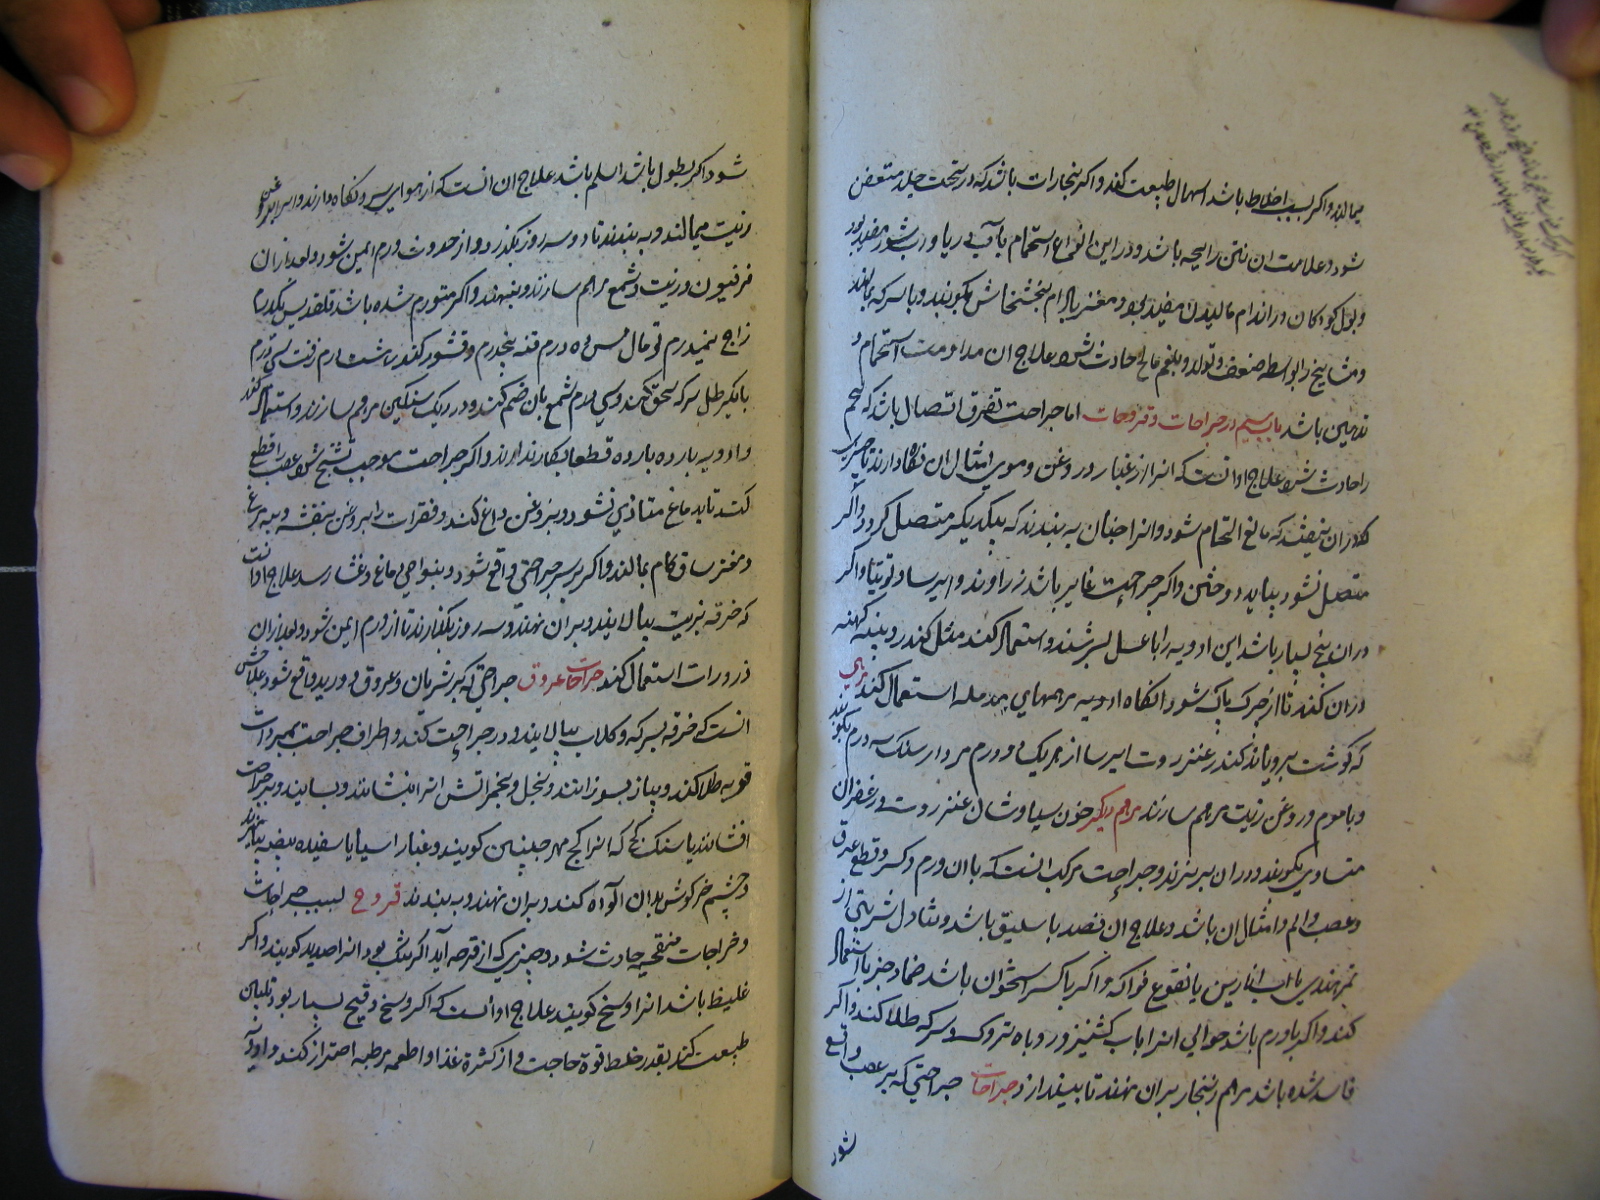 میمالند و اکر بسبب اخلاط باشد اسهال طبیعت کنند و اکر بخارات باشد که در تحت جلد متعفن
شود و علامت ان نتن رایحه باشد و در این انواع استحمام باب دریا و اب شور مفید بود
و بول کودکان در اندام مالیدن مفید بود و مغز بادام بخشخاش بکوبند و با سرکه بمالند
و مشایخ را بواسطه ضعف و تولد بلغم مالح حادث شود علاج ان مداومت استحمام و
تدهین باشد باب سیم در جراحات و قروحات اما جراحت تفرق اتصال باشد که لحم
را حادث شود علاج او انست که انرا از غبار و روغن و موی و امثال ان نکاه دارند تا چیزی
در ان نیفتد که مانع التحام شود و انرا چنان به بندند که بیکدیکر متصل کردد و اکر
متصل نشود بباید دوختن و اکر جراحت غایر باشد زراوند و ایرسا و توتیا و اکر
در ان وسخ بسیار باشد این ادویه را با عسل بسرشند و استعمال کنند مثل کندر و پنبه کهنه
در ان کنند تا از چرک پاک شود انکاه ادویه مرهمهای مدمله استعمال کنند مرهمی
که کوشت برویاند کندر عنزروت ایرسا از هریک دو درم مردارسنک سه درم بکوبند
و با موم و روغن زیت مرهم سازند مرهم دیکر خون سیاوشان عنزروت زعفران
متساوی بکوبند و در ان بریزند و جراحت مرکب انست که با ان ورم و کسر و قطع عرق
و عصب و الم و امثال ان باشد و علاج ان فصد باسلیق باشد و تناول اشربتی از
تمرهندی یا اب انارین یا نقوع فواکه و اکر با کسر استخوان باشد ضماد جبر استعمال
کنند و اکر با ورم باشد حوالی انرا باب کشنیز و روباه تروک و سرکه طلا کنند و اکر
فاسد شده باشد مرهم زنجار بران نهند تا بیندازد جراحات جراحتی که بر عصب واقع
شود
شود اکر بطول باشد اسلم باشد علاج ان انست که از هوای سرد نکاه دارند و سر ان بروغن
زیت میمالند و به بندند تا دو سه روز بکذرد و از حدوث ورم ایمن شود و بعد از ان
فرفیون و زیت و شمع مرهم سازند و بنهند و اکر متورم شده باشد قلقدیس یکدرم
زاج نیمدرم توبال مس ده درم قنه پنجدرم و قشور کندر هشت درم زفت سی درم
با یکرطل سرکه سحق کنند و سی درم شمع بان ضم کنند و در دیک سنکین مرهم سازند و استعمال کنند
و ادویه بارده قطعا بکار ندارند و اکر جراحت موجب تشنج شود عصب را قطع
کنند تا بدماغ متاذی نشود و بروغن داغ کنند و فقرات را بروغن بنفشه و پیه مرغ
و مغز ساق کام بمالند و اکر بر سر جراحتی واقع شود و بنواحی دماغ و غشا رسد علاج او انست
که خرقه بزیت بیالایند و بران نهند و سه روز بکذارند تا از ورم ایمن شود و بعد از ان
ذرورات استعمال کنند جراحات عروق جراحتی که بر شریان و عروق و ورید واقع شود علاجش
انست که خرقه بسرکه و کلاب بیالایند و در جراحت کنند و اطراف جراحت بمبردات
قویه طلا کنند و پیاز بسوزانند و بخل و بخمر اتش انرا بنشانند و بسایند و بر جراحت
افشانند یا سنک کچ که انرا کچ مهر جبسین کویند و غبار اسیا با سفیده بیضه بیامیزند
و پشم خرکوش بدان الوده کنند و بران نهند و به بندند قروح بسبب جراحات
و خراجات متقیحه حادث شود و چیزی که از قرحه آید اکر رقیق بود انرا صدید کویند و اکر
غلیظ باشد انرا وسخ کویند علاج او انست که اکر وسخ و قیح بسیار بود تلیین
طبیعت کنند بقدر خلط و قوة حاجت و از کثرة غذا و اطعمه رطبه احتراز کنند و ادویه